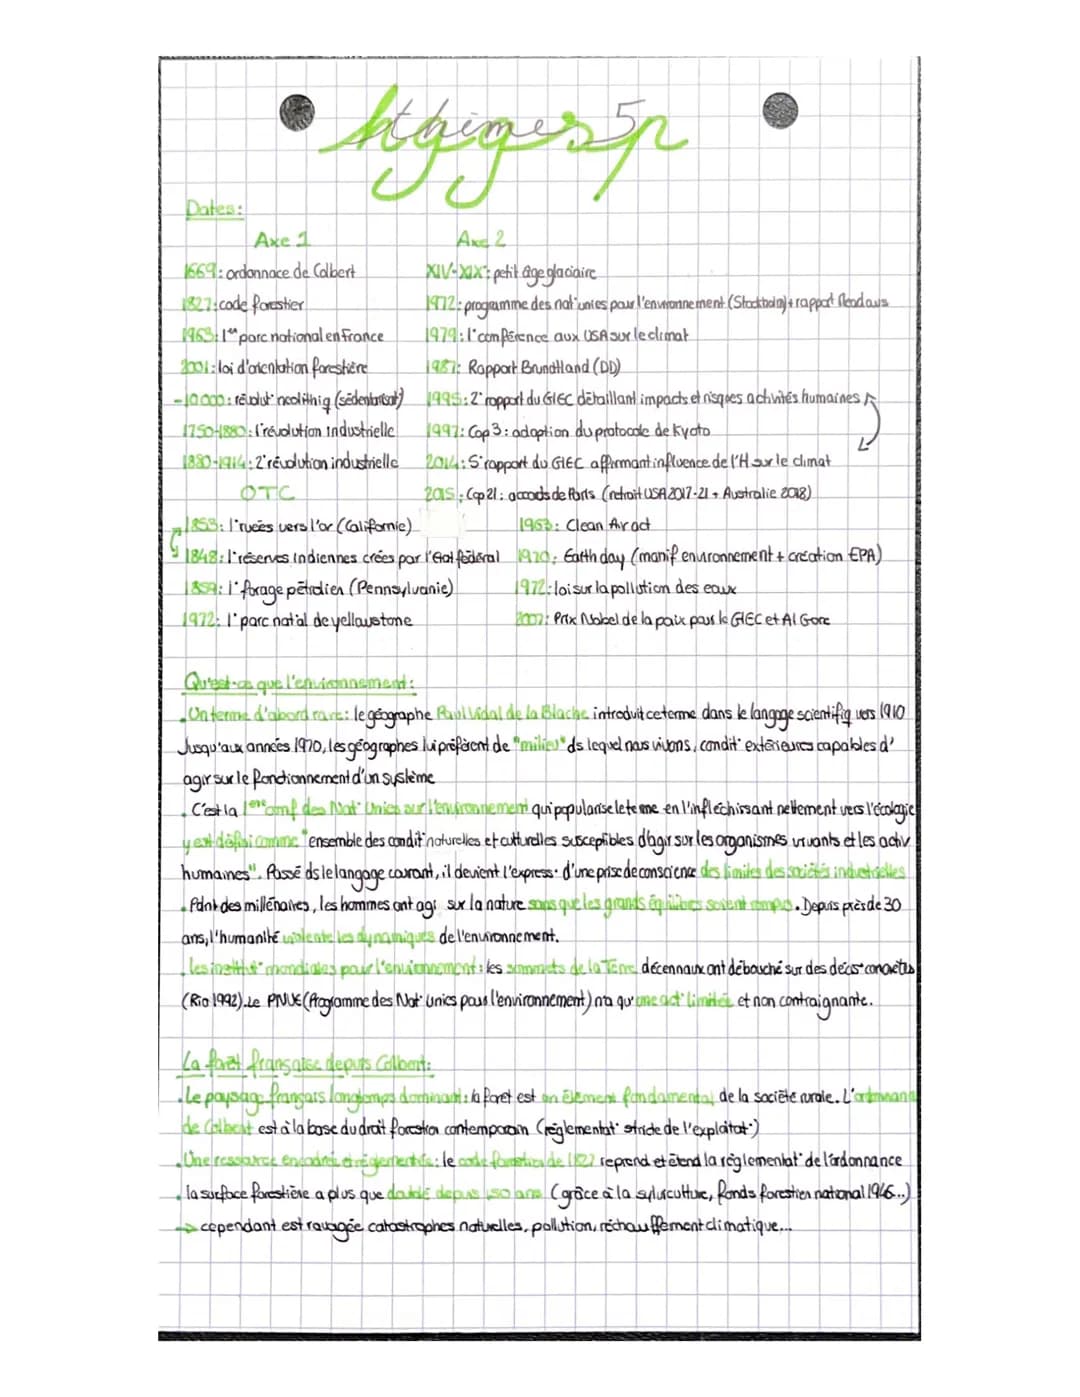 hggsp
thème 5
Dates:
Axe 1
Axe 2
1669: ordonnace de Colbert
XIV-XIX°: petit âge glaciaire
1827: code forestier
1972: programme des nat° unies pour l'environnement (Stockholm) + rapport Meadows
1963: 1er parc national en France
1979: 1° conférence aux USA sur le climat
2001: loi d'orientation forestière
1987: Rapport Brundtland (DD)
-10 000: révolut° neolithiq (sédentarisat°)
1995: 2° rapport du GIEC détaillant impacts et risques activités humaines
1750-1880: 1° révolution industrielle
1997: Cop 3: adoption du protocole de Kyoto
1880-1914: 2° révolution industrielle
2014: 5° rapport du GIEC affirmant influence de l'H sur le climat
OTC
2015: Cop 21: accords de Paris (retrait USA 2017-21 + Australie 2018)
1853: 1° ruées vers l'or (Californie)
1963: Clean Air act
1848: 1° réserves indiennes crées par l'Etat fédéral
1970: Earth day (manif environnement + création EPA)
1859: 1° forage pétrolier (Pennsylvanie)
1972: loi sur la pollution des eaux
1972: 1° parc nat°al de yellowstone
2007: Prix Nobel de la paix pour le GIEC et Al Gore
Qu'est-ce que l'environnement:
. Un terme d'abord rare: le géographe Paul Vidal de la Blache introduit ce terme dans le langage scientifiq vers 1910
Jusqu'aux années 1970, les géographes lui préfèrent de "milieu" ds lequel nous vivons, condit° extérieures capables d'
agir sur le fonctionnement d'un système
. C'est la 1ère conf des Nat° Unies sur l'environnement qui popularise le terme en l'infléchissant nettement vers l'écologie
y est défini comme "ensemble des condit° naturelles et culturelles susceptibles d'agir sur les organismes vivants et les activ
humaines". Passé ds le langage courant, il devient l'express° d'une prise de conscience des limites des sociétés industrielles
. Pdnt des millénaires, les hommes ont agi sur la nature sans que les grands équilibres soient rompus. Depuis près de 30
ans, l'humanité violente les dynamiques de l'environnement.
. les institut° mondiales pour l'environnement: les sommets de la Terre décennaux ont débouché sur des décis° concrètes
(Rio 1992). Le PNUE (Programme des Nat° Unies pour l'environnement) n'a qu'une act° limitée et non contraignante.
La forêt française depuis Colbert:
. Le paysage français longtemps dominant: la foret est un élément fondamental de la société rurale. L'ordonnance
de Colbert est à la base du droit forestier contemporain (réglementat° stricte de l'exploitat°)
. Une ressource encadrée et réglementée: le code forestier de 1827 reprend et étend la règlementat° de l'ordonnance
. la surface forestière a plus que doublé depuis 150 ans (grâce à la sylviculture, fonds forestier national 1946...)
→ cependant est ravagée catastrophes naturelles, pollution, réchauffement climatique...